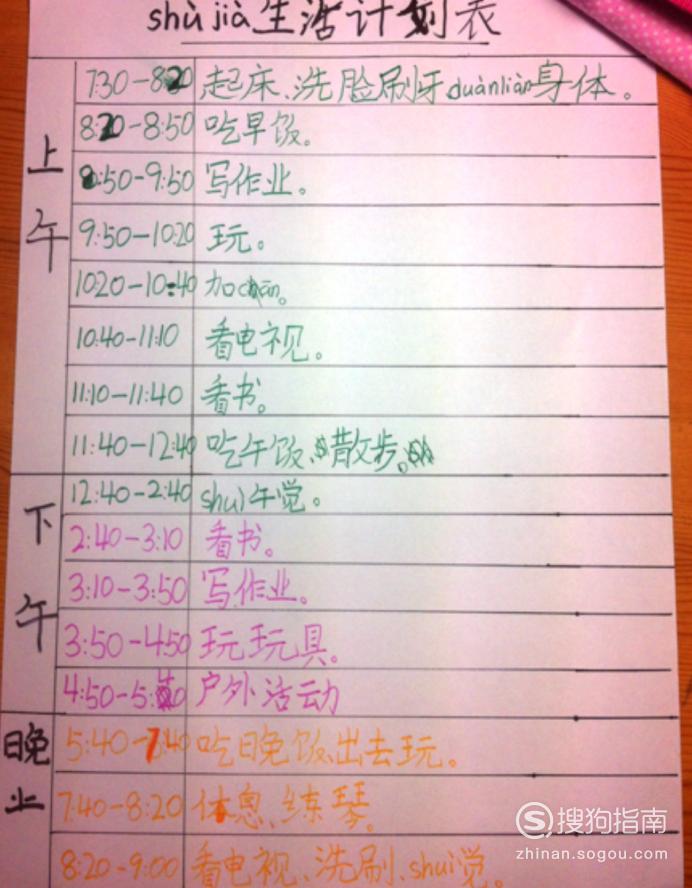 shǔ jià 生活计划表
上午
7:30-8:20 起床、洗脸刷牙duànliàn身体。
8:20-8:50 吃早饭。
8:50-9:50 写作业。
9:50-10:20 玩。
10:20-10:40 加cān。
10:40-11:10 看电视。
11:10-11:40 看书。
11:40-12:40 吃午饭、散步。
下午
12:40-2:40 shuì午觉。
2:40-3:10 看书。
3:10-3:50 写作业。
3:50-4:50 玩玩具。
4:50- 户外活动
晚上
5:40-7:40 吃晚饭、出去玩。
7:40-8:20 休息、练琴。
8:20-9:00 看电视、洗刷、shuì觉。
搜狗指南
zhinan.sogou.com